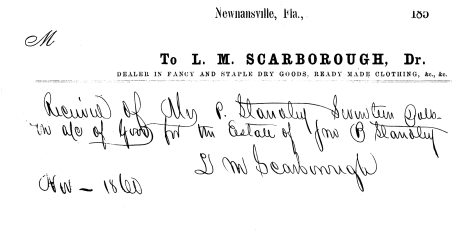 Newnansville, Fla., 185
M
To L. M. SCARBOROUGH, Dr.
DEALER IN FANCY AND STAPLE DRY GOODS, READY MADE CLOTHING, &c., &c.
Received of Mrs P. Standley Seventeen Dolls
in a/c of Goods for the Estate of Jno B Standley
L M Scarborough
Nov - 1860